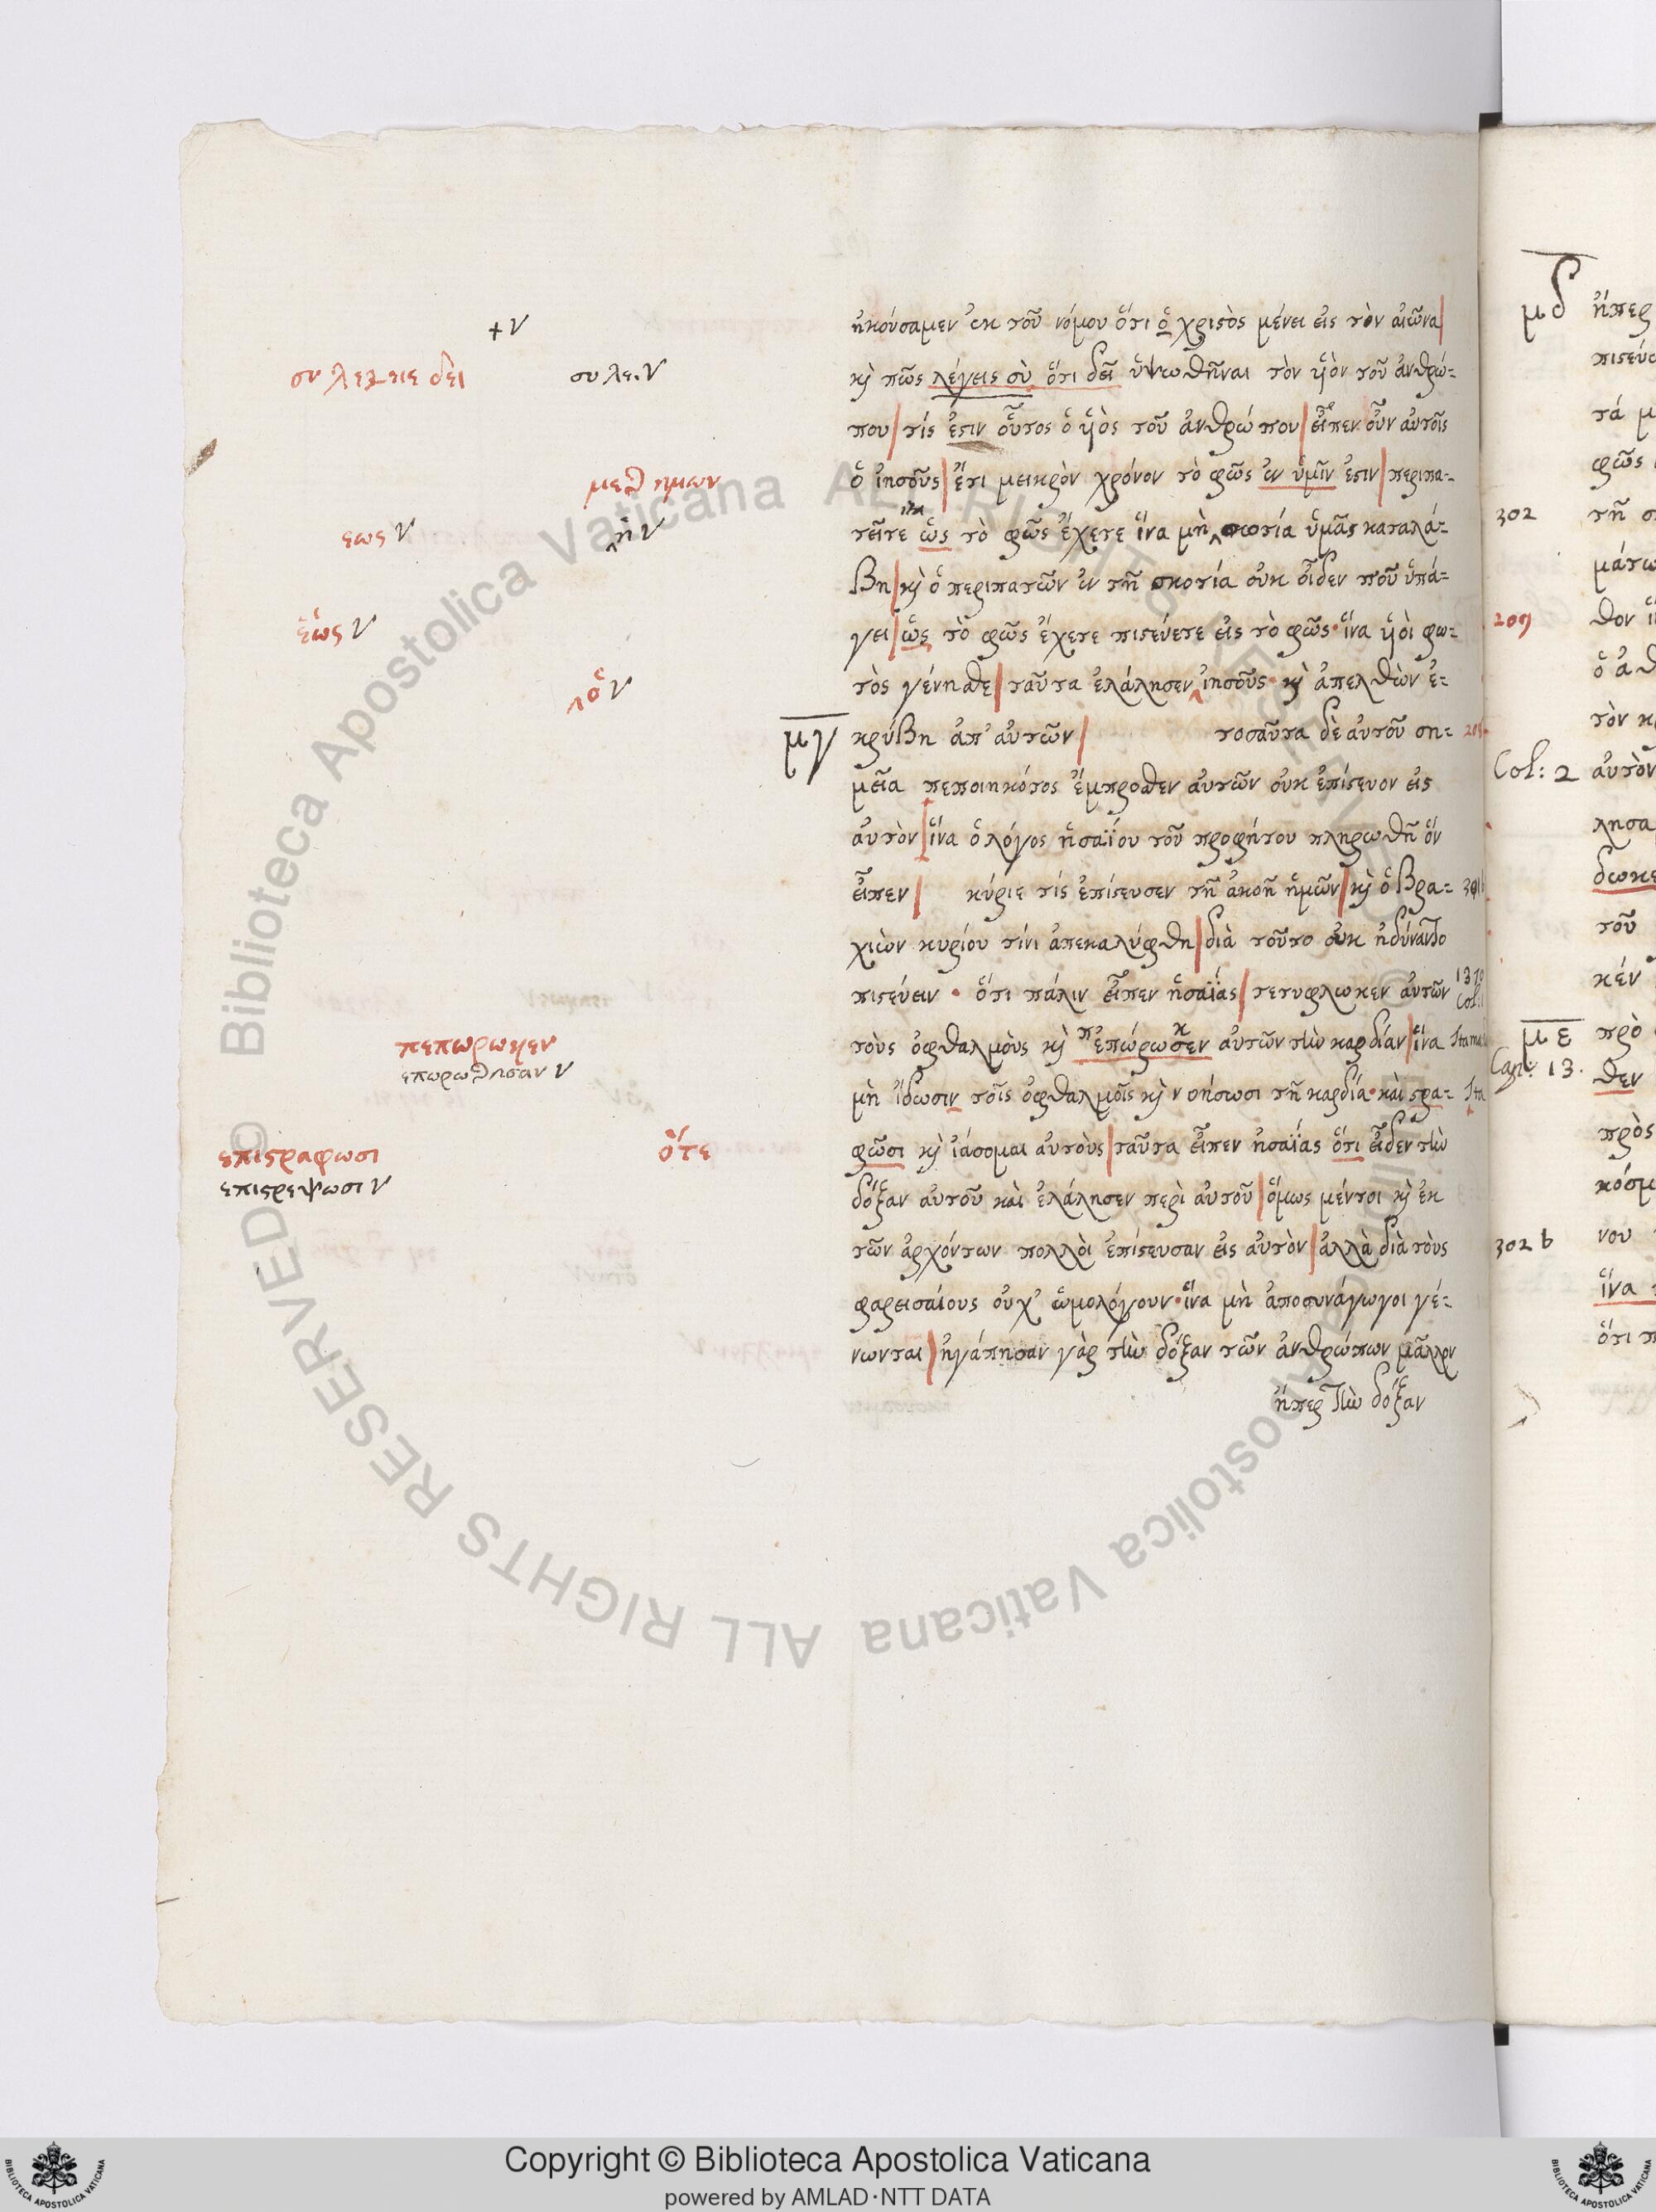 +ν
συ λεγεις δεῖ
συ λε. ν
μεθ ημων
εως ν
ἡ ν
ἕως ν
ὁ ν
πεπωρωκεν
επωρωθησαν ν
επιϛραφωσι
επιϛρεψωσι ν
ὅτε
ἠκούσαμεν ἐκ τοῦ νόμου ὅτι ὁ χριϛὸς μένει εἰς τὸν αἰῶνα|
κὶ πῶς λέγεις σὺ ὅτι δεῖ ὑψωθῆναι τὸν ϋἱὸν τοῦ ἀνθρώ-
που| τίς ἐϛιν οὗτος ὁ ϋἱὸς τοῦ ἀνθρώπου| εἶπεν οὖν αὐτοῖς
ὁ ἰησοῦς| ἔτι μεικρὸν χρόνον τὸ φῶς ἐν ὑμῖν ἐϛιν| περιπα-
τεῖτε ὡς τὸ φῶς ἔχετε ἵνα μὴ σκοτία ὑμᾶς καταλά-
βη| κὶ ὁ περιπατῶν ἐν τῇ σκοτία οὐκ οἶδεν ποῦ ὑπά-
γει| ὡς τὸ φῶς ἔχετε πιϛεύετε εἰς τὸ φῶς· ἵνα ϋἱοὶ φω-
τὸς γένησθε| ταῦτα ἐλάλησεν ἰησοῦς· κὶ ἀπελθὼν ἐ-
μγ
κρύβη ἀπ' αὐτῶν| τοσαῦτα δὲ αὐτοῦ ση-
μεῖα πεποιηκότος ἔμπροσθεν αὐτῶν οὐκ ἐπίϛευον εἰς
αὐτὸν| ἵνα ὁ λόγος ἡσαΐου τοῦ προφήτου πληρωθῆ ὅν
εἶπεν| κύριε τίς ἐπίϛευσεν τῇ ἀκοῇ ἡμῶν| κὶ ὁ βρα-
χιὼν κυρίου τίνι ἀπεκαλύφθη| διὰ τοῦτο οὐκ ἠδύναντο
πιϛεύειν · ὅτι πάλιν εἶπεν ἡσαΐας| τετυφλωκεν αὐτῶν
τοὺς ὀφθαλμοὺς κὶ ἐπώρωσεν αὐτῶν τὴν καρδίαν| ἵνα
μὴ ἴδωσιν τοῖς ὀφθαλμοῖς κὶ νοήσωσι τῇ καρδία· καὶ ϛρα-
φῶσι κὶ ἰάσομαι αὐτοὺς| ταῦτα εἶπεν ἠσαΐας ὅτι εἶδεν τὴν
δόξαν αὐτοῦ καὶ ἐλάλησεν περὶ αὐτοῦ| ὅμως μέντοι κὶ ἐκ
τῶν ἀρχόντων πολλοὶ ἐπίϛευσαν εἰς αὐτὸν| ἀλλὰ διὰ τοὺς
φαρεισαίους οὐχ' ὡμολόγουν· ἵνα μὴ ἀποσυνάγωγοι γέ-
νωνται| ἠγάπησαν γὰρ τὴν δόξαν τῶν ἀνθρώπων μᾶλλον
ἤπερ τὴν δόξαν
μδ
302
209
Col: 2
με
Can: 13.
302 b
ἤπερ
τῇ
ὁ
αὐτὸν
τοῦ
πρὸ
θεν
πρὸς
νου
ἵνα
© Biblioteca Apostolica Vaticana ALL RIGHTS RESERVED
Copyright © Biblioteca Apostolica Vaticana
powered by AMLAD·NTT DATA
BIBLIOTECA APOSTOLICA VATICANA
BIBLIOTECA APOSTOLICA VATICANA